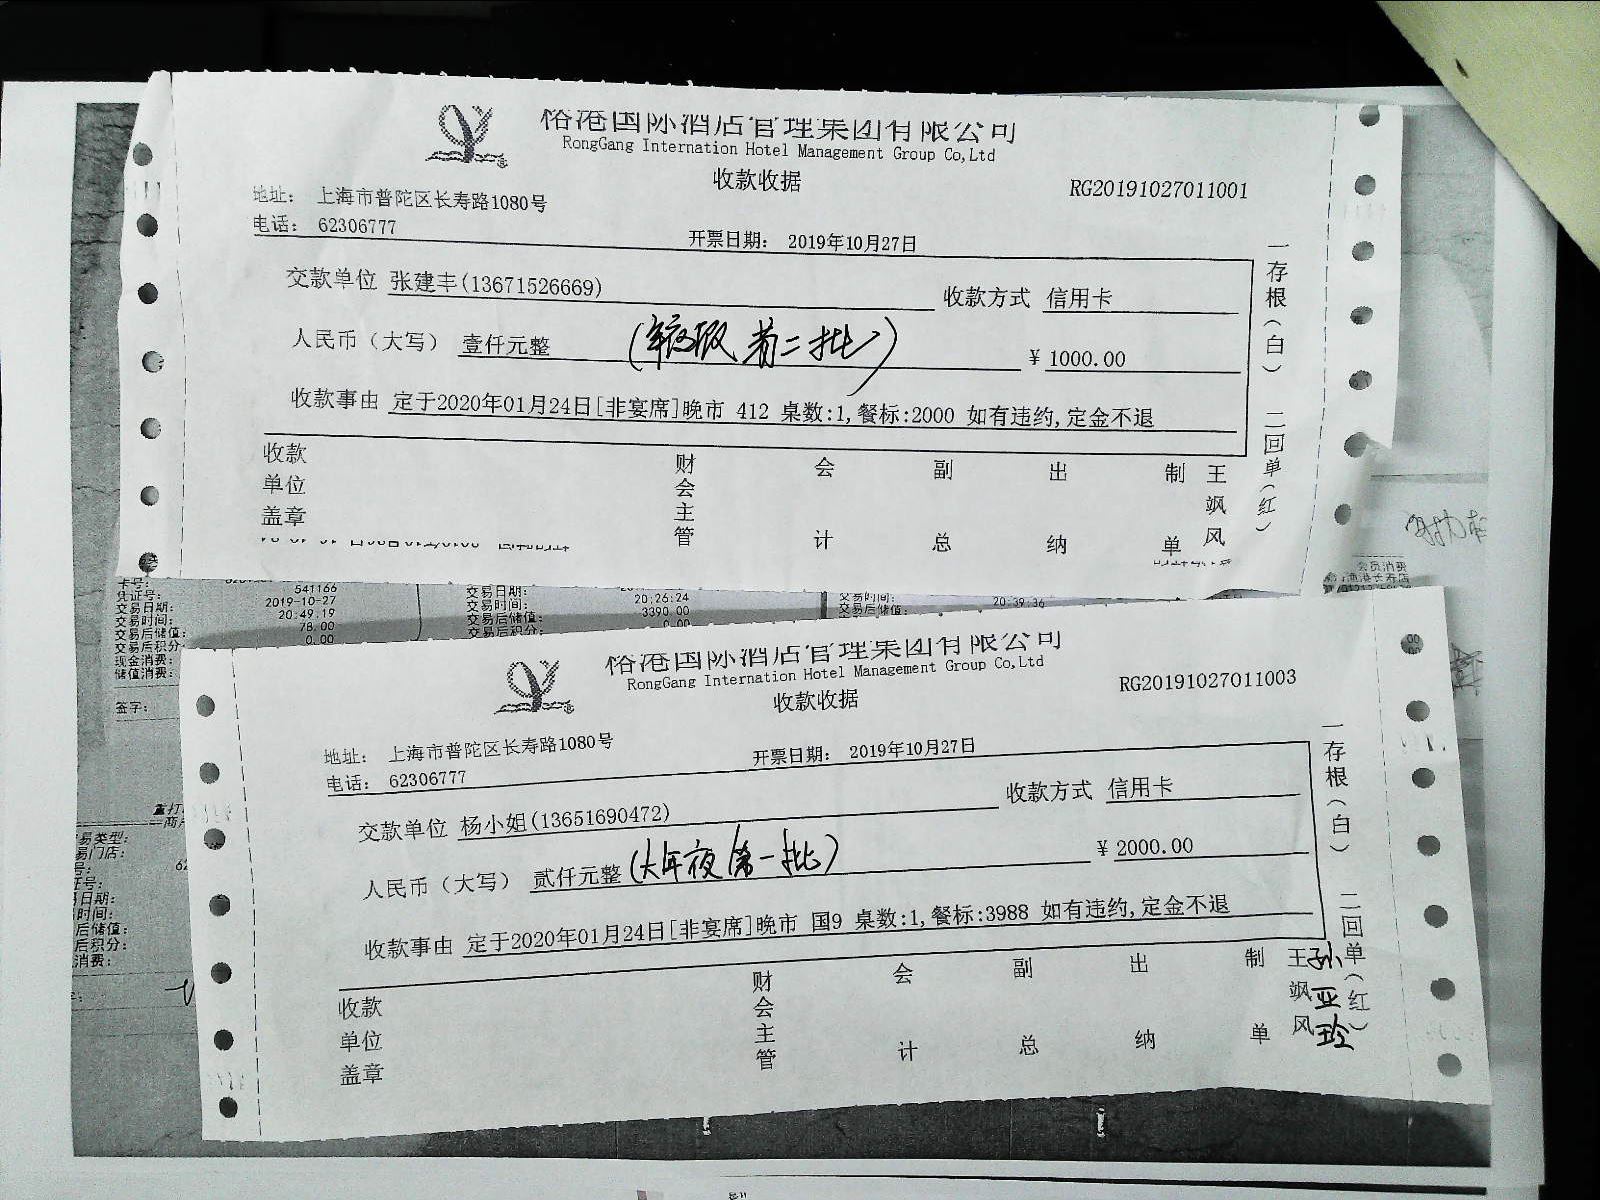 裕港国际酒店管理集团有限公司
RongGang Internation Hotel Management Group Co,Ltd
收款收据
RG20191027011001
地址： 上海市普陀区长寿路1080号
电话： 62306777
开票日期： 2019年10月27日
交款单位 张建丰(13671526669)
收款方式 信用卡
人民币（大写） 壹仟元整
二批）
¥ 1000.00
收款事由 定于2020年01月24日[非宴席]晚市 412 桌数:1,餐标:2000 如有违约,定金不退
一存根（白） 二回单（红）
收款单位盖章
财会主管
会计
副总
出纳
制单
王飒风
卡号：
凭证号： 541166
交易日期： 2019-10-27
交易时间： 20:49:19
交易后储值： 78.00
交易后积分： 0.00
现金消费：
储值消费：
签字：
交易日期：
交易时间： 20:26:24
交易后储值： 3390.00
交易后积分： 0.00
交易时间： 20:39:36
交易后储值：
会员消费
裕港国际酒店管理集团有限公司
RongGang Internation Hotel Management Group Co,Ltd
收款收据
RG20191027011003
地址： 上海市普陀区长寿路1080号
电话： 62306777
开票日期： 2019年10月27日
交款单位 杨小姐(13651690472)
收款方式 信用卡
人民币（大写） 贰仟元整（大年夜第一批）
¥ 2000.00
收款事由 定于2020年01月24日[非宴席]晚市 国9 桌数:1,餐标:3988 如有违约,定金不退
一存根（白） 二回单（红）
收款单位盖章
财会主管
会计
副总
出纳
制单
王飒风
孙亚玲
重打
易类型：
易门店：
日期：
时间：
后储值：
后积分：
消费：